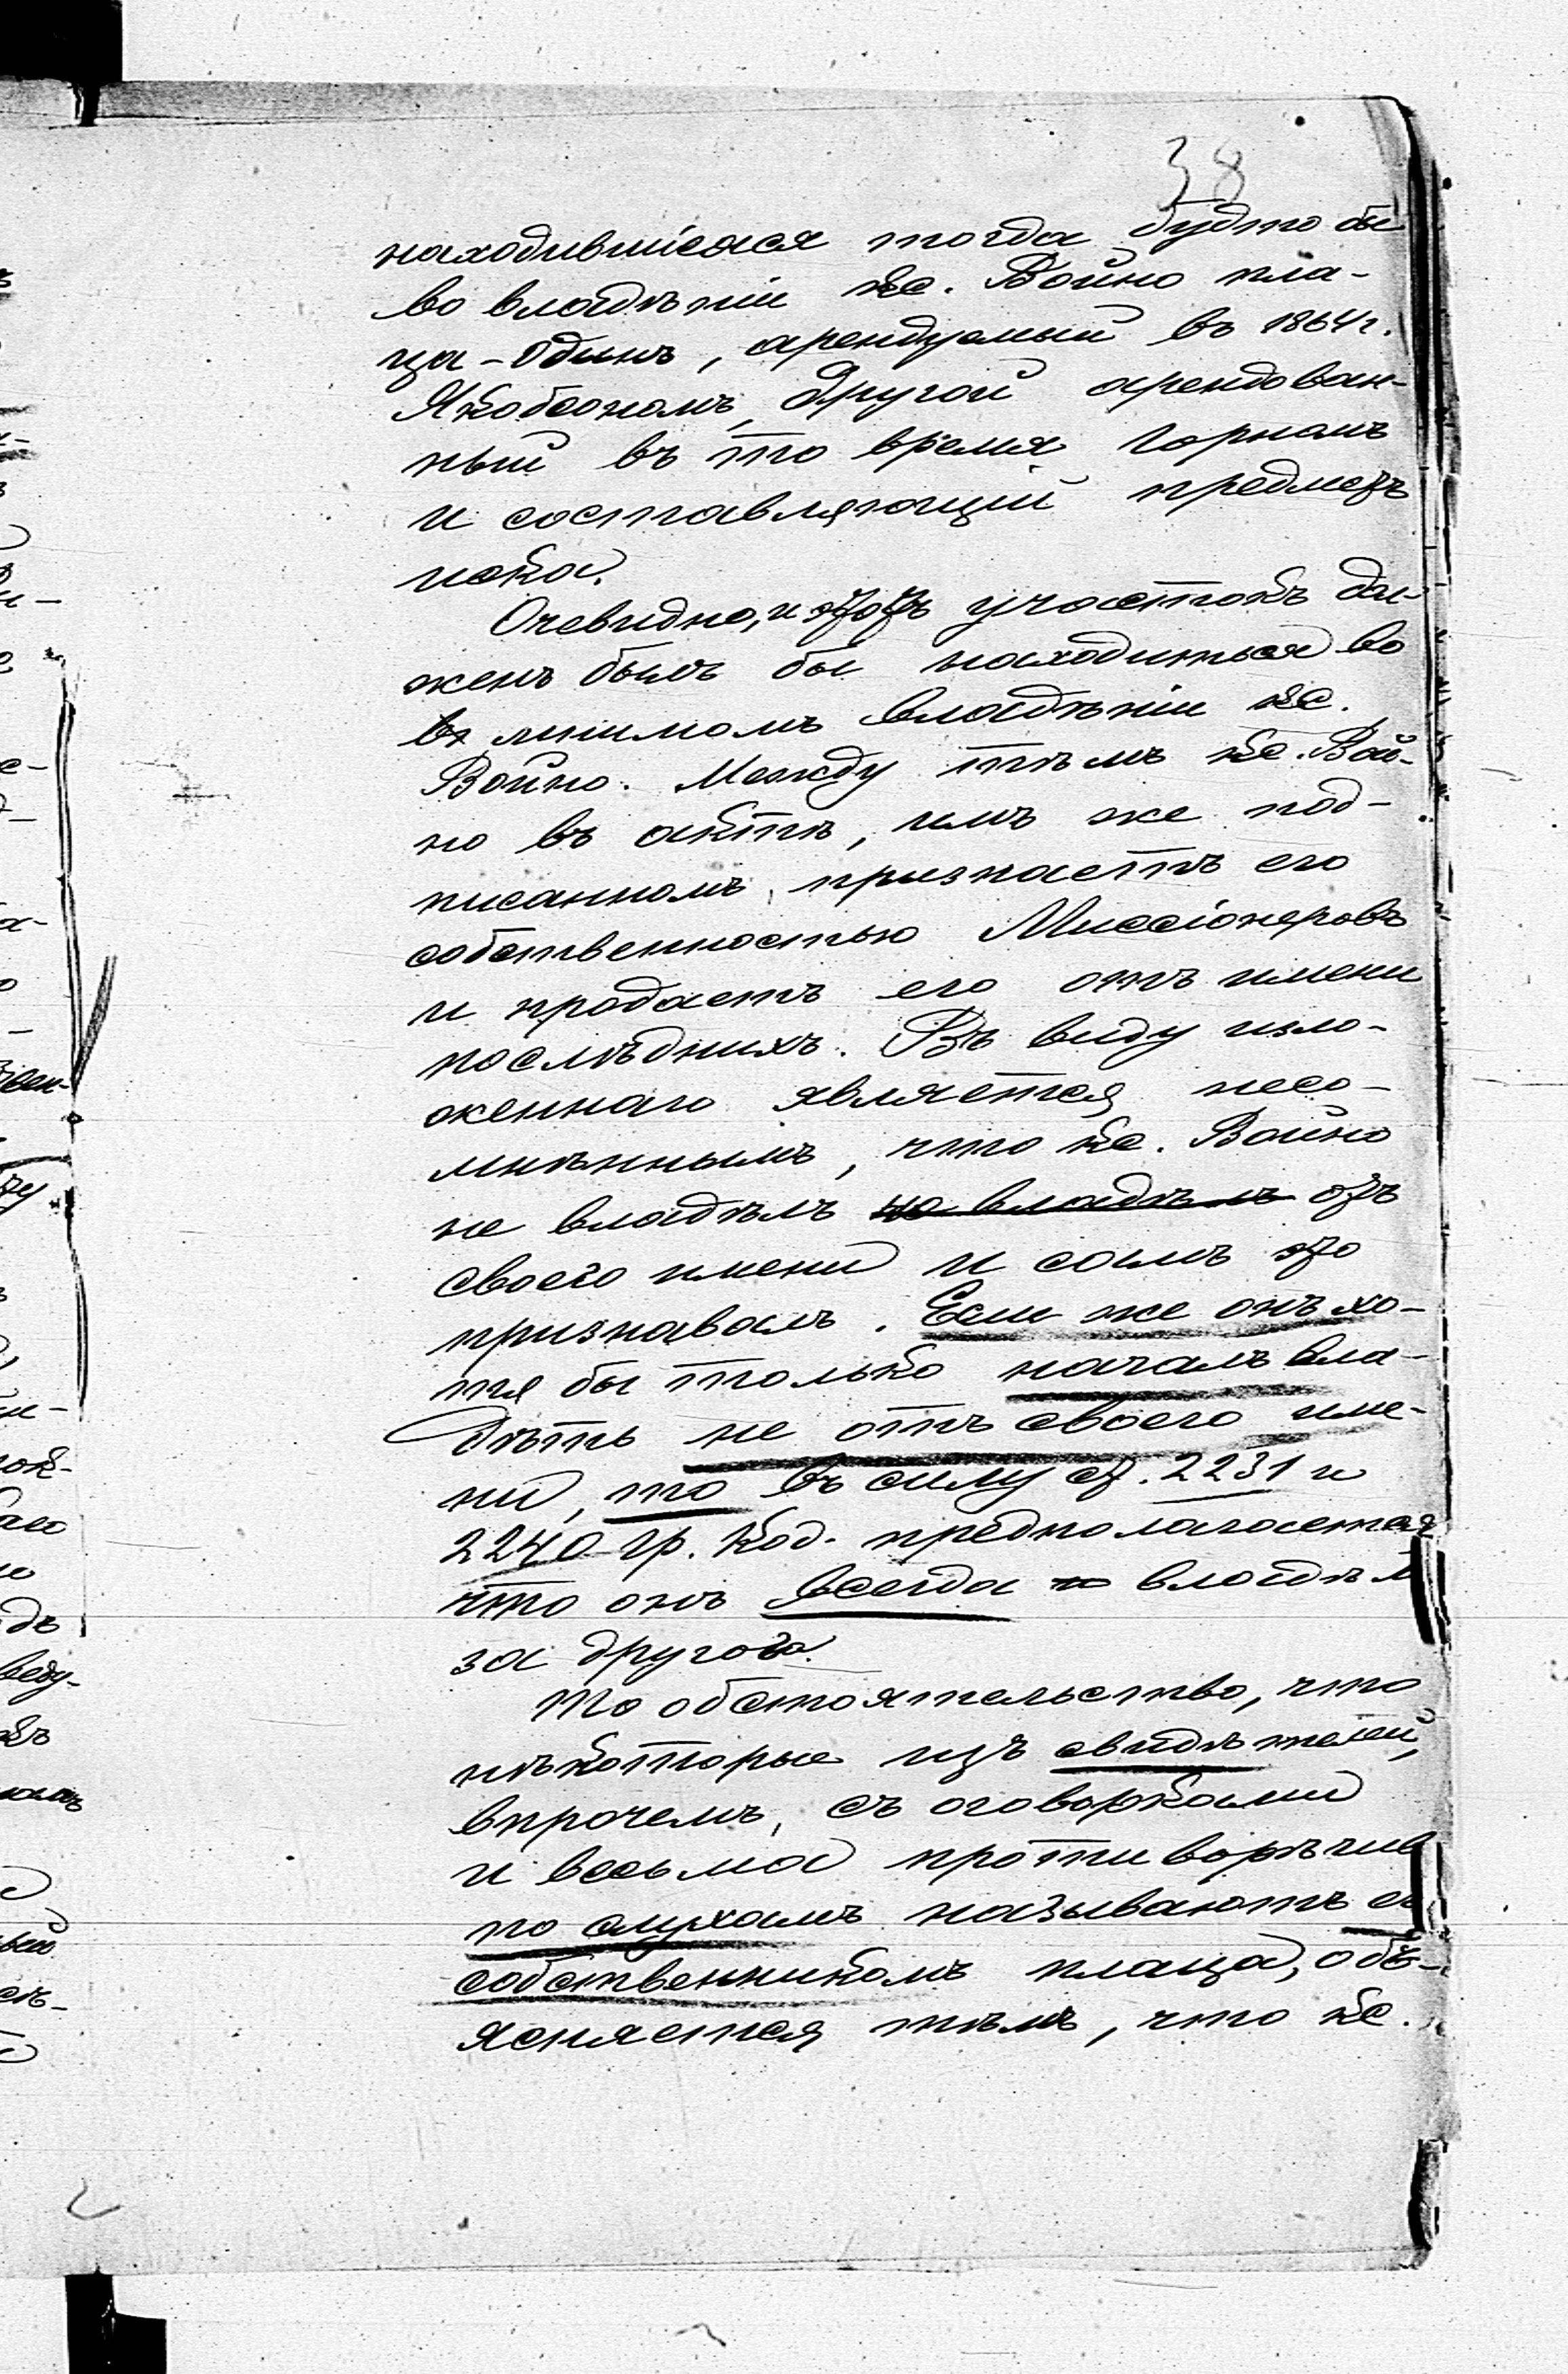 38
находившіеся тогда будто бы
во владѣніи кс. Войно пла-
ца - одинъ, арендуемый въ 1864 г.
Якобсономъ, другой арендован-
ный въ то время Горномъ
и составляющій предметъ
иска.
Очевидно, и этотъ участокъ дол-
женъ былъ бы находиться во
мнимомъ владѣніи кс.
Войно. Между тѣмъ кс. Вой-
но въ актѣ, имъ же под-
писанномъ, признаетъ его
собственностью Миссіонеровъ
и продаетъ его отъ имени
послѣднихъ. Въ виду изло-
женнаго является несо-
мнѣннымъ, что кс. Войно
не владѣлъ не владѣлъ отъ
своего имени и самъ это
признавалъ. Если же онъ хо-
тя бы только началъ вла-
дѣть не отъ своего име-
ни, то въ силу ст. 2231 и
2240 гр. код. предполагается
что онъ всегда владѣлъ
за другого.
То обстоятельство, что
нѣкоторые изъ свидѣтелей,
впрочемъ, съ оговорками
и весьма противорѣчив
по слухамъ называютъ его
собственникомъ плаца, объ-
ясняется тѣмъ, что кс.